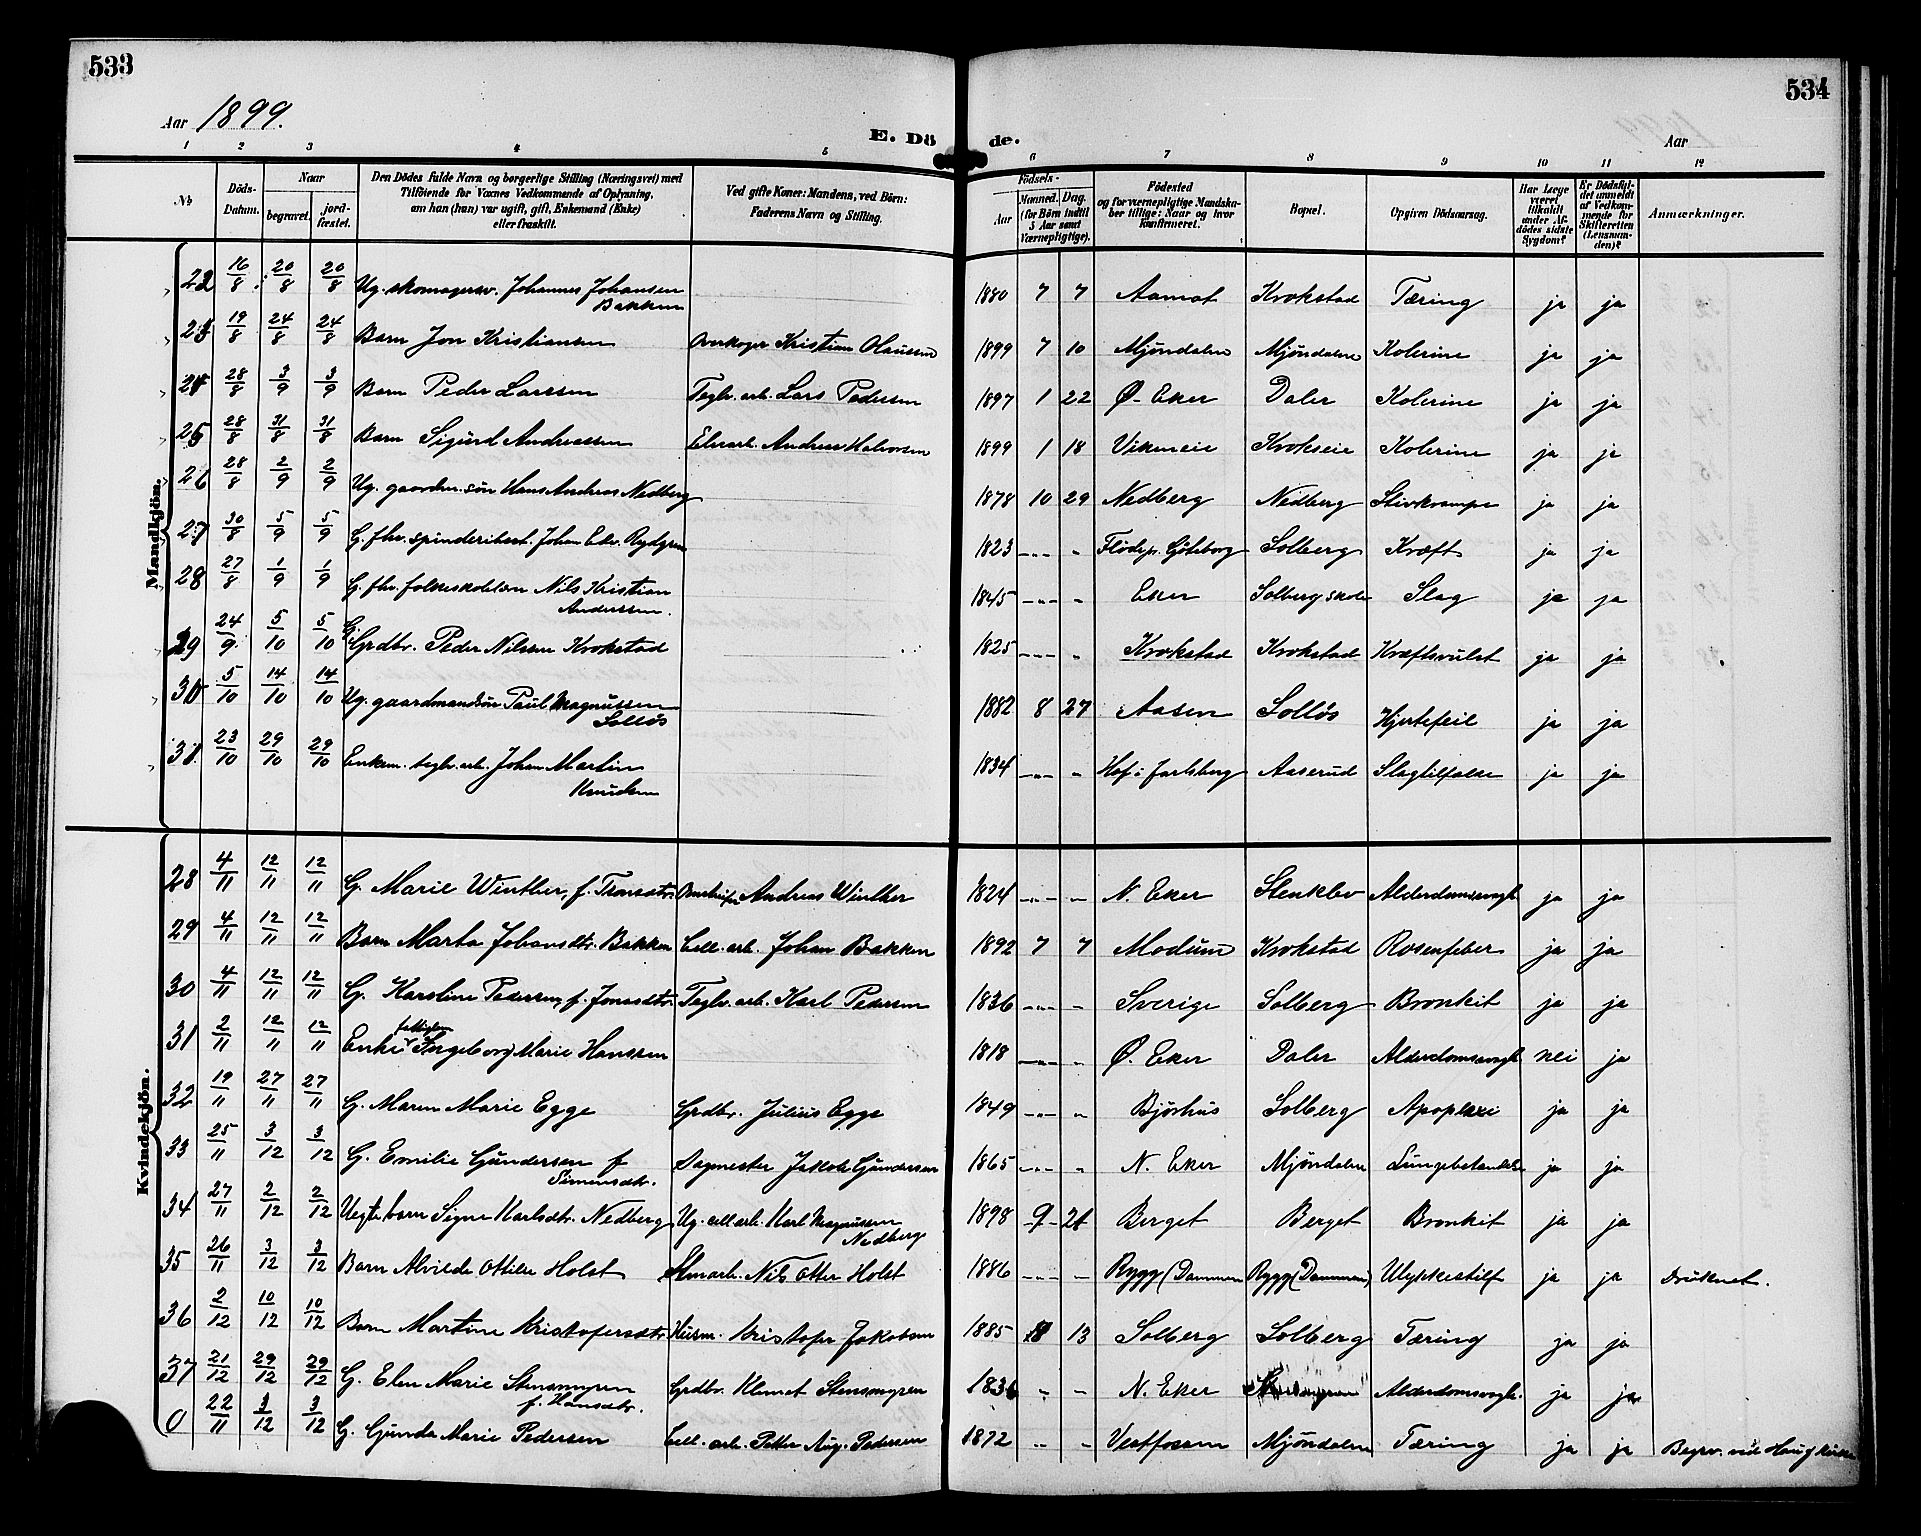 533
534
Aar 1899.
Aar
E. Dö de.
1 2 3 4 5 6 7 8 9 10 11 12
№
Döds-Datum.
Naar
begravet.
jord-fæstet.
Den Dödes fulde Navn og borgerlige Stilling (Næringsvei) med
Tilföiende for Voxnes Vedkommende af Oplysning,
om han (hun) var ugift, gift, Enkemand (Enke)
eller fraskilt.
Ved gifte Koner: Mandens, ved Börn:
Faderens Navn og Stilling.
Födsels-
Aar
Maaned. Dag.
(for Börn indtil
3 Aar samt
Værnepligtige).
Födested
og for værnepligtige Mandska-
ber tillige: Naar og hvor
konfirmeret.
Bopæl.
Opgiven Dödsaarsag.
Har Læge
været
tilkaldt
under Af-
dödes sidste
Sygdom?
Er Dödsfal-
det anmeldt
af Vedkom-
mende for
Skifteretten
(Lensman-
den)?
Anmærkninger.
Mandkjön.
22 16/8 20/8 20/8 Ug. skomagersv. Johannes Johansen Bakken 1880 7 7 Aamot Krokstad Tæring ja ja
23 19/8 24/8 24/8 Barn Jon Kristiansen Overkoger Kristian Olaussen 1899 7 10 Mjøndalen Mjøndalen Kolerine ja ja
24 28/8 3/9 3/9 Barn Peder Larssen Teglv. arb. Lars Pedersen 1897 1 22 Ø. Eker Daler Kolerine ja ja
25 28/8 31/8 31/8 Barn Sigurd Andreassen Andreas Halvorsen 1899 1 18 Vikmeie Krokseie Kolerine ja ja
26 28/8 2/9 2/9 Ug. gaardm. søn Hans Andreas Nedberg 1878 10 29 Nedberg Nedberg Stivkrampe ja ja
27 30/8 5/9 5/9 G. fhv. spinderibest. Johan Edv. Rydgren 1823 Göteborg Solberg Kræft ja ja
28 27/8 1/9 1/9 G. fhv. folkeskolelærer Nils Kristian Anderssen. 1845 Eker Solberg skole Slag ja ja
29 24/9 5/10 5/10 G. Grdbr. Peder Nilssen Krokstad 1825 Krokstad Krokstad Kræftsvulst ja ja
30 5/10 14/10 14/10 Ug. gaardmandsøn Paul Magnussen Solløs 1882 8 27 Aasen Solløs Hjertefeil ja ja
31 23/10 29/10 29/10 Enkem. teglv. arb. Johan Martin Knudsen 1834 Hof i Jarlsberg Aaserud Slagtilfælde ja ja
Kvindekjön.
28 4/11 12/11 12/11 G. Marie Winther, f. Tronsdtr. Andreas Winther 1824 N. Eker Stenklev Alderdomssvagh. ja ja
29 4/11 12/11 12/11 Barn Marta Johansdtr. Bakken Cell. arb. Johan Bakken 1892 7 7 Modum Krokstad Rosenfeber ja ja
30 4/11 12/11 12/11 G. Karoline Pedersen, f. Jonasdtr. Teglv. arb. Karl Pedersen 1836 Sverige Solberg Bronkit ja ja
31 2/11 12/11 12/11 Enke fattiglem Ingeborg Marie Hanssen 1818 Ø. Eker Daler Alderdomssvagh. nei ja
32 19/11 27/11 27/11 G. Maren Marie Egge Grdbr. Julius Egge 1849 Bjørhus Solberg Apoplexi ja ja
33 25/11 3/12 3/12 G. Emilie Gundersen f Simensdtr. Sagmester Jakob Gundersen 1865 N. Eker Mjøndalen Lungebetændelse ja ja
34 27/11 2/12 2/12 Uegte barn Signe Karlsdtr. Nedberg Ug. cell. arb. Karl Magnussen Nedberg 1898 9 21 Berget Berget Bronkit ja ja
35 26/11 3/12 3/12 Barn Alvilde Ottilie Holst Nils Otter Holst 1886 Rygg (Dammen Rygg (Dammen) Ulykkestilf ja ja druknet.
36 2/12 10/12 10/12 Barn Martine Kristofersdtr. Husm. Kristofer Jakobsen 1885 8 13 Solberg Solberg Tæring ja ja
37 21/12 29/12 29/12 G. Elen Marie Stensmyren f. Hansdtr. Grdbr. Klemet Stensmyren 1836 N. Eker Alderdomssvagh. ja ja
0 22/11 3/12 3/12 G. Gunda Marie Pedersen Cell. arb. Petter Aug. Pedersen 1872 Vestfossen Mjøndalen Tæring ja ja Begrav. ved Haug kirke